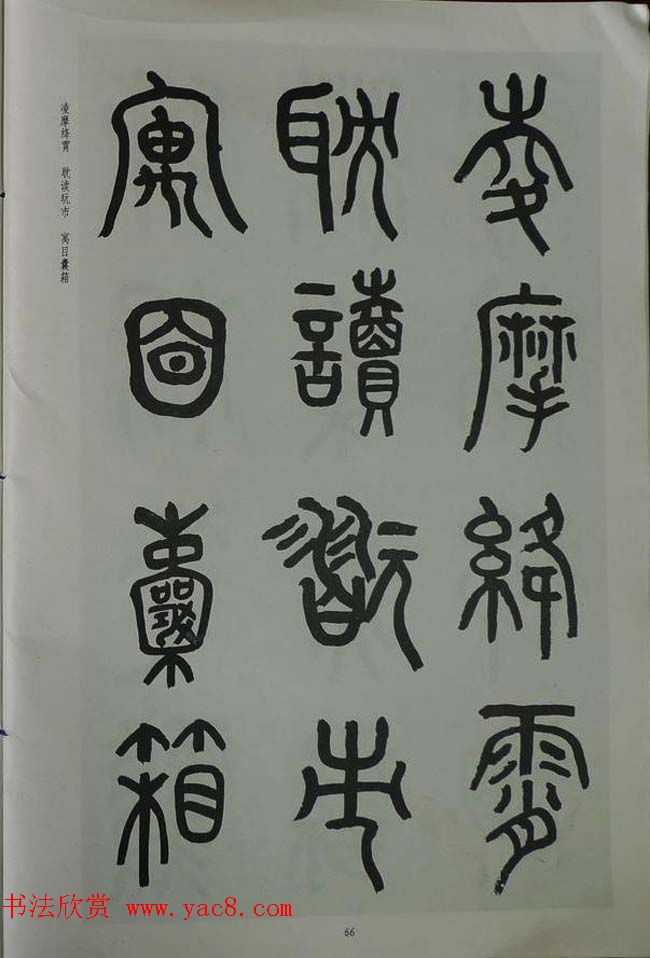 夌摩絳霄
耽讀翫市
寓目囊箱
凌摩绛霄 耽读玩市 寓目囊箱
书法欣赏 www.yac8.com
66